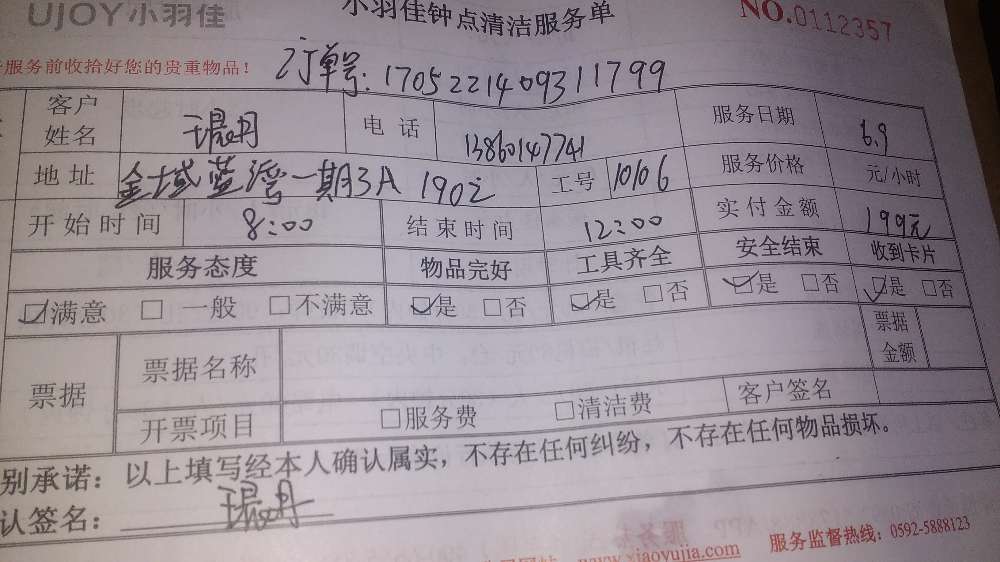 UJOY小羽佳 小羽佳钟点清洁服务单 NO.0112357
服务前收拾好您的贵重物品! 订单号:17052214093311799
客户姓名 电话 13860147741 服务日期 6.9
地址 金域蓝湾一期3A 工号 10106 服务价格 元/小时
开始时间 8:00 结束时间 12:00 实付金额 199元
服务态度 物品完好 工具齐全 安全结束 收到卡片
☑满意 □一般 □不满意 ☑是 □否 ☑是 □否 ☑是 □否 ☑是 □否
票据 票据名称 票据金额
开票项目 □服务费 □清洁费 客户签名
别承诺:以上填写经本人确认属实,不存在任何纠纷,不存在任何物品损坏。
认签名:
www.xiaoyujia.com 服务监督热线:0592-5888123